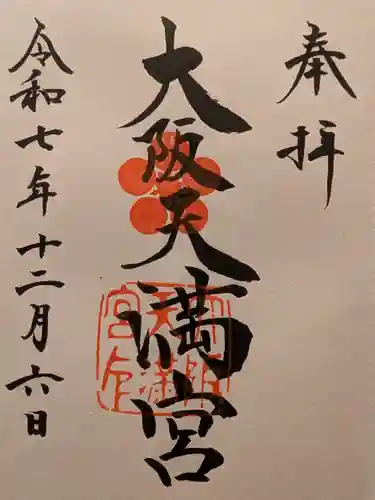 奉拝
大阪天満宮
令和七年十二月六日